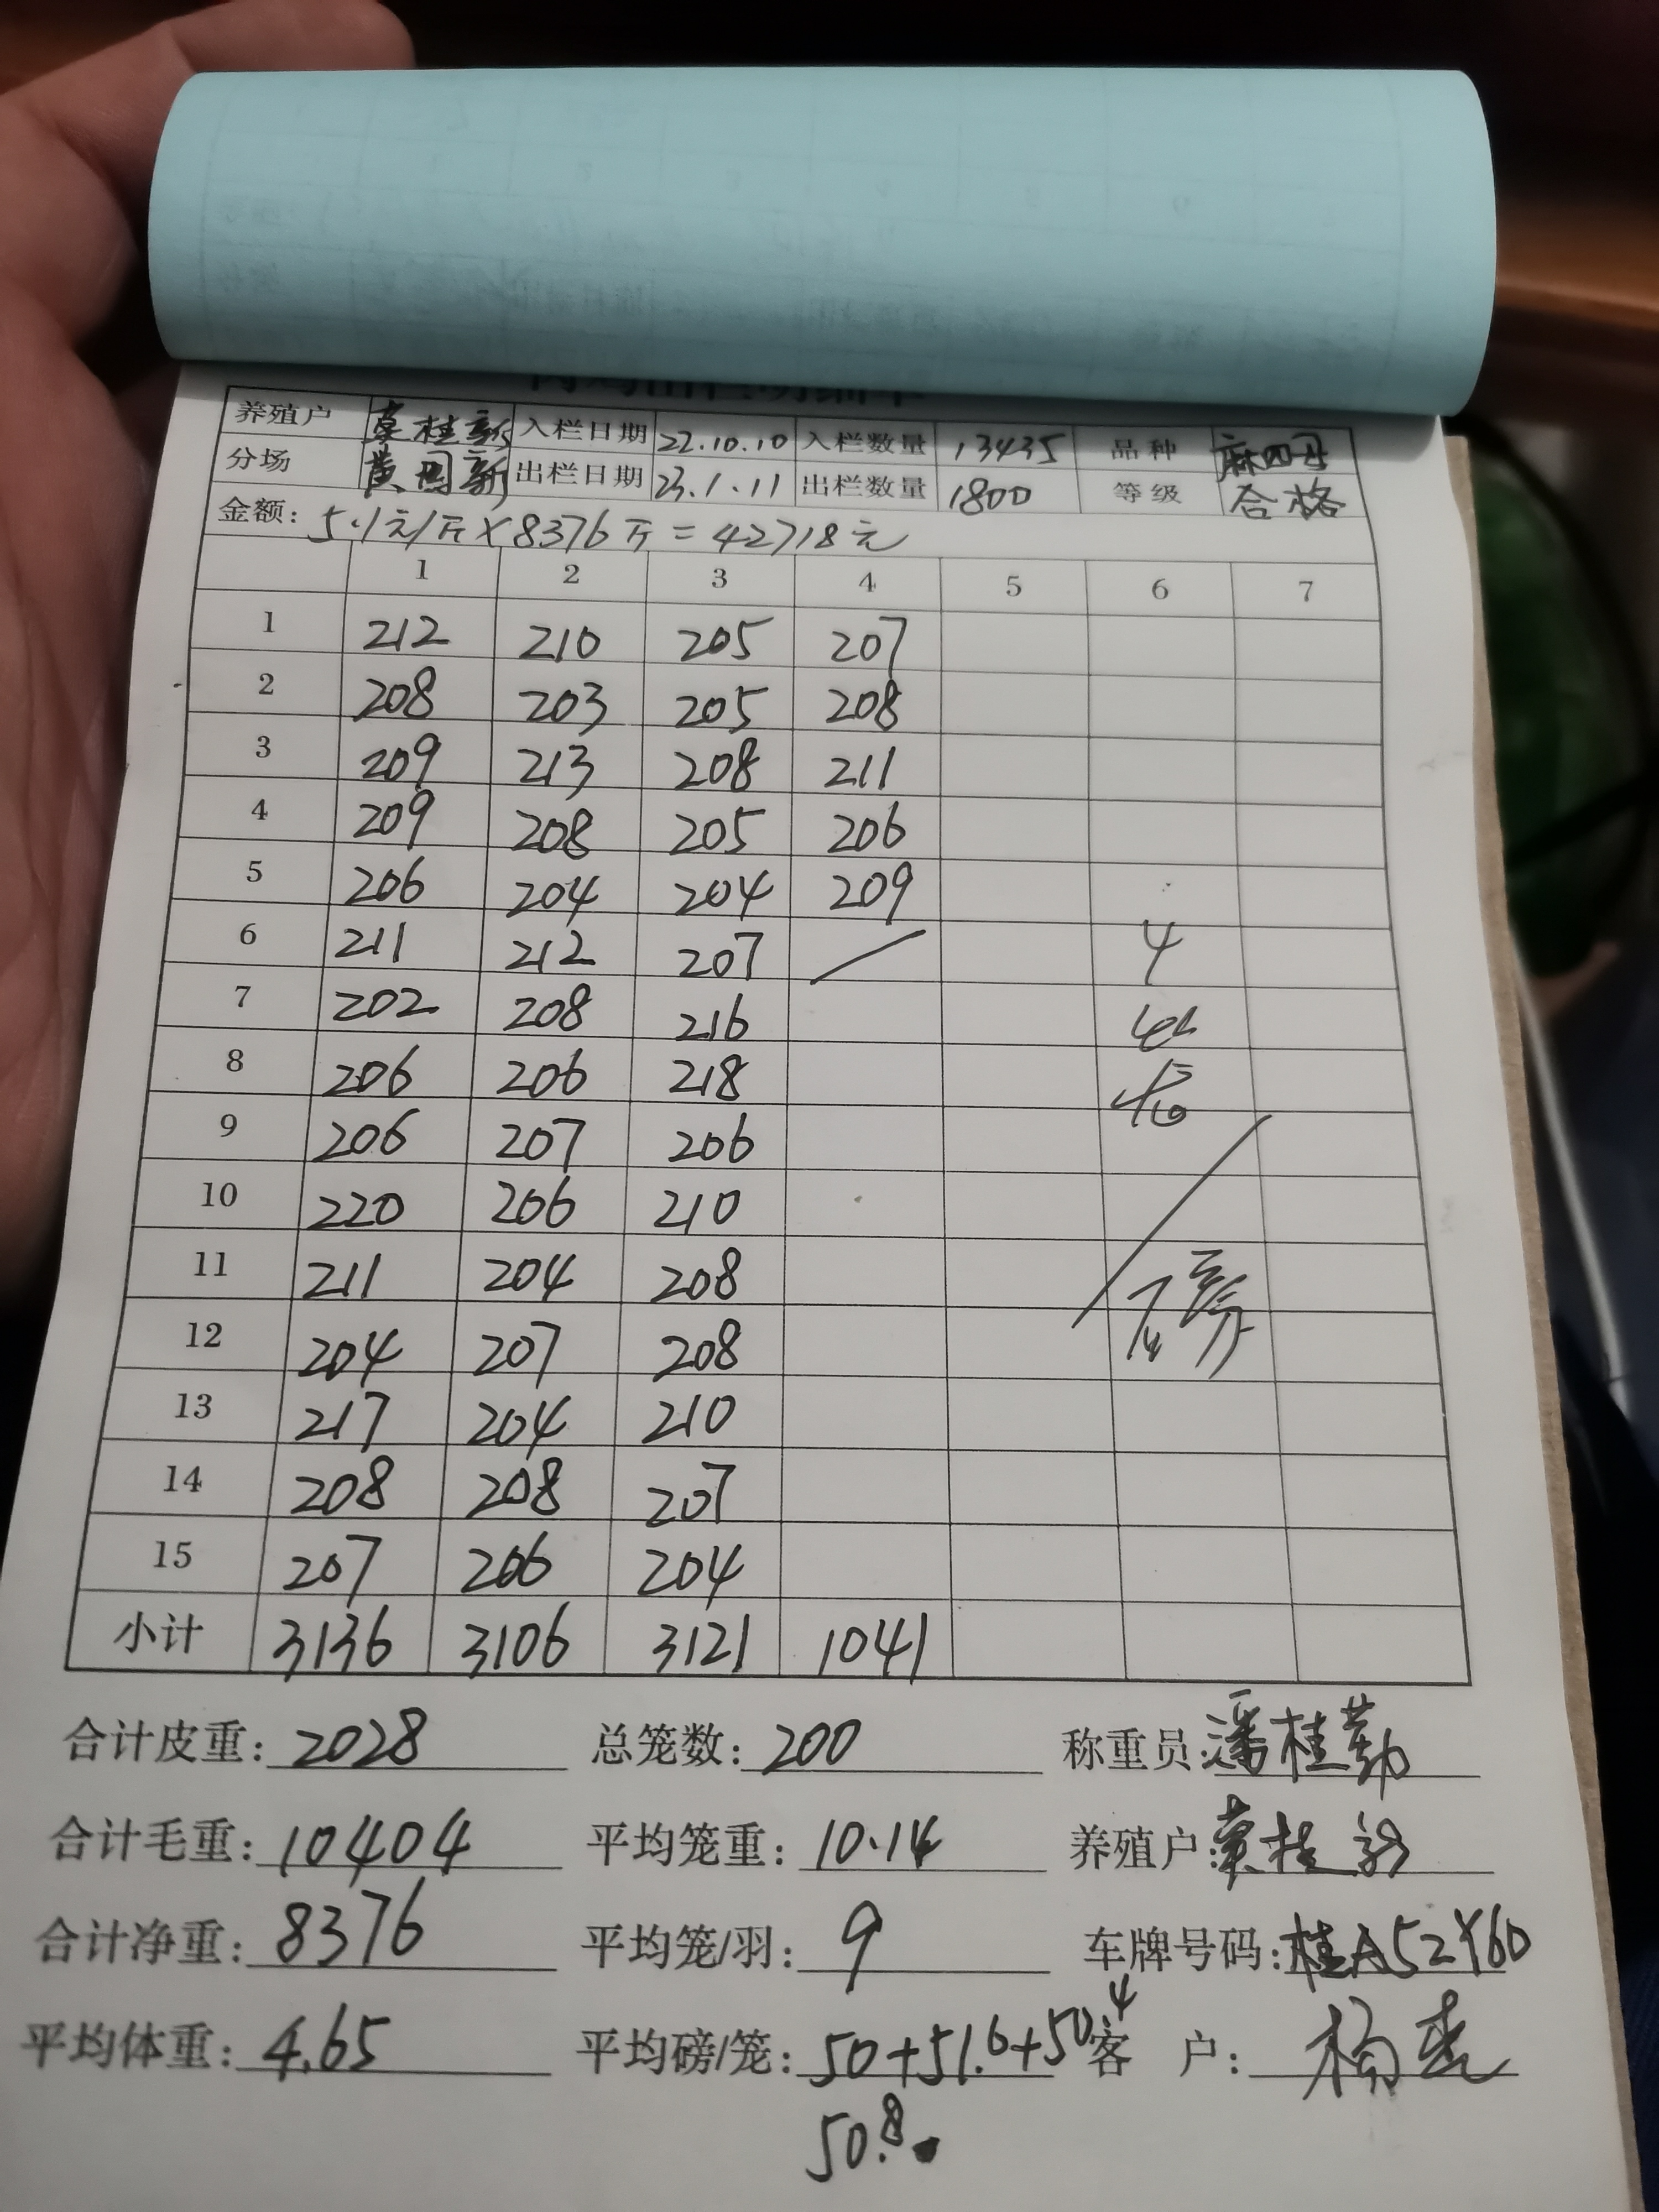 养殖户 莫桂新 入栏日期 22.10.10 入栏数量 13435 品种 麻四母
分场 黄国新 出栏日期 23.1.11 出栏数量 1800 等级 合格
金额: 5.1元/斤×8376斤=42718元
1 2 3 4 5 6 7
1 212 210 205 207
2 208 203 205 208
3 209 213 208 211
4 209 208 205 206
5 206 204 204 209
6 211 212 207 4
7 202 208 216
8 206 206 218
9 206 207 206
10 220 206 210
11 211 204 208
12 204 207 208
13 217 204 210
14 208 208 207
15 207 206 204
小计 3136 3106 3121 1041
合计皮重: 2028 总笼数: 200 称重员: 潘桂勤
合计毛重: 10404 平均笼重: 10.14 养殖户: 莫桂新
合计净重: 8376 平均笼/羽: 9 车牌号码: 桂A52Y60
平均体重: 4.65 平均磅/笼: 50+51.6+50.4 客 户:
50.8